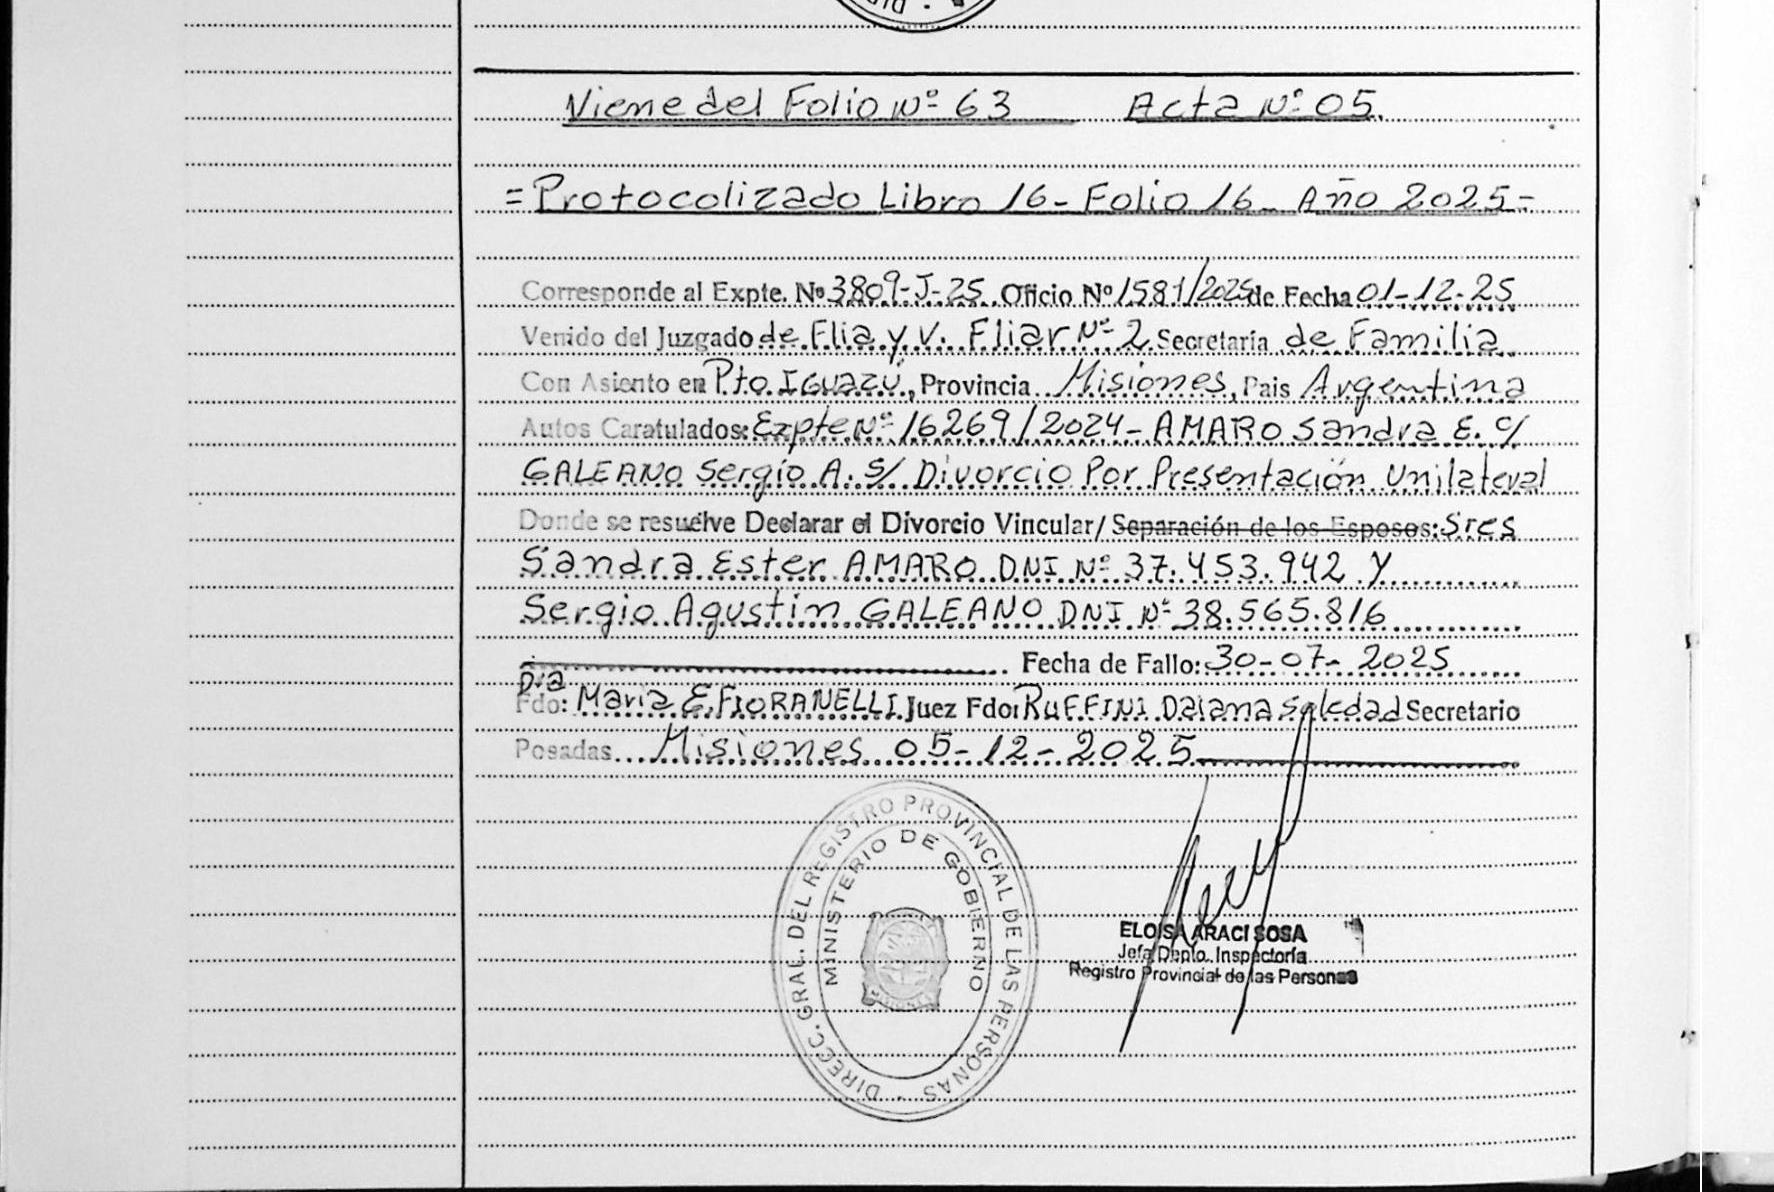 Viene del Folio Nº 63 Acta Nº 05.
=Protocolizado Libro 16- Folio 16- Año 2025-
Corresponde al Expte. Nº 3809-J-25 Oficio Nº 1581/2025 de Fecha 01-12-25
Venido del Juzgado de Flia y V. Fliar Nº 2 Secretaria de Familia
Con Asiento en Pto. Iguazú, Provincia Misiones, Pais Argentina
Autos Caratulados: Expte Nº 16269/2024- AMARO Sandra E. c/
GALEANO Sergio A. S/ Divorcio Por Presentación Unilateral
Donde se resuelve Declarar el Divorcio Vincular/ Separación de los Esposos: Sres
Sandra Ester AMARO DNI Nº 37.453.942 Y
Sergio Agustin GALEANO DNI Nº 38.565.816
Fecha de Fallo: 30-07-2025
Dra
Fdo: Maria E. FIORANELLI Juez Fdo: RUFFINI Daiana Soledad Secretario
Posadas... Misiones 05-12-2025
DIRECC. GRAL. DEL REGISTRO PROVINCIAL DE LAS PERSONAS -
MINISTERIO DE GOBIERNO
MISIONES
ELOISA ARACI SOSA
Jefa Dpto. Inspectoría
Registro Provincial de las Personas